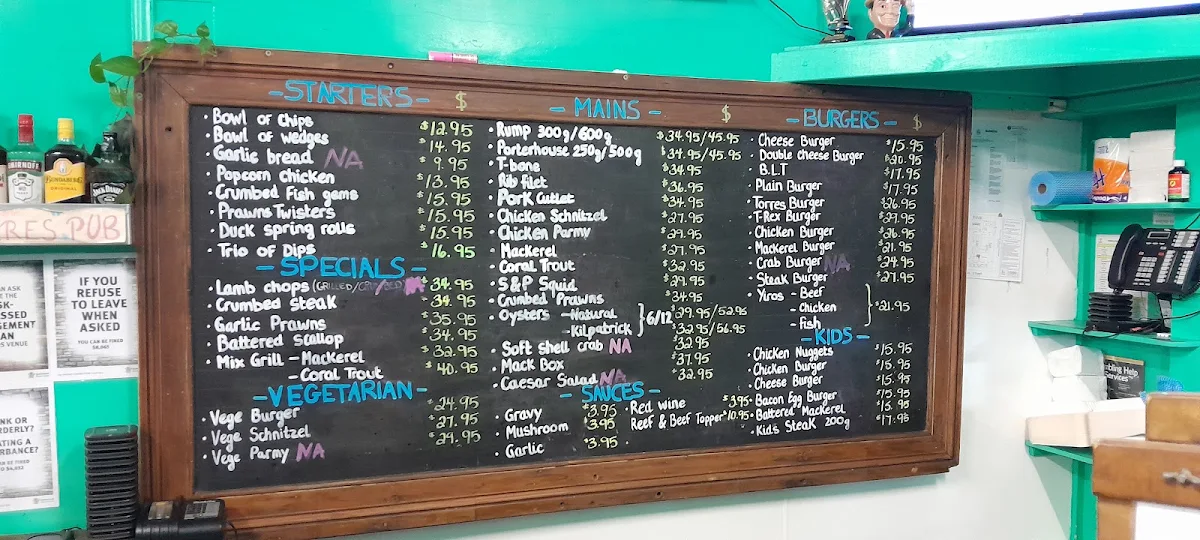 -STARTERS- $
• Bowl of chips $12.95
• Bowl of wedges $14.95
• Garlic bread NA $9.95
• Popcorn chicken $13.95
• Crumbed Fish gems $15.95
• Prawns Twisters $15.95
• Duck spring rolls $15.95
• Trio of Dips $16.95
-SPECIALS-
• Lamb chops (GRILLED/CRUMBED) NA $34.95
• Crumbed steak $34.95
• Garlic Prawns $35.95
• Battered scallop $34.95
• Mix Grill - Mackerel $32.95
- Coral Trout $40.95
-VEGETARIAN-
• Vege Burger $24.95
• Vege Schnitzel $27.95
• Vege Parmy NA $29.95
- MAINS - $
• Rump 300g/600g $34.95/45.95
• Porterhouse 250g/500g $34.95/45.95
• T-bone $34.95
• Rib filet $36.95
• Pork Cutlet $34.95
• Chicken Schnitzel $27.95
• Chicken Parmy $29.95
• Mackerel $27.95
• Coral Trout $32.95
• S&P Squid $29.95
• Crumbed Prawns $34.95
• Oysters - Natural } 6/12 $29.95/52.95
- Kilpatrick $32.95/56.95
• Soft shell crab NA $32.95
• Mack Box $37.95
• Caesar Salad NA $32.95
- SAUCES -
• Gravy $3.95
• Mushroom $3.95
• Garlic $3.95
• Red wine $3.95
Reef & Beef Topper $10.95
- BURGERS - $
• Cheese Burger $15.95
• Double Cheese Burger $20.95
• B.L.T $17.95
• Plain Burger $17.95
• Torres Burger $26.95
• T-Rex Burger $29.95
• Chicken Burger $26.95
• Mackerel Burger $21.95
• Crab Burger NA $24.95
• Steak Burger $27.95
• Yiros - Beef
- Chicken } $21.95
- Fish
- KIDS -
• Chicken Nuggets $15.95
• Chicken Burger $15.95
• Cheese Burger $15.95
• Bacon Egg Burger $15.95
• Battered Mackerel $15.95
• Kid's Steak 200g $17.95
SMIRNOFF
BUNDABERG
RES PUB
IF YOU
REFUSE
TO LEAVE
WHEN
ASKED
YOU CAN BE FINED